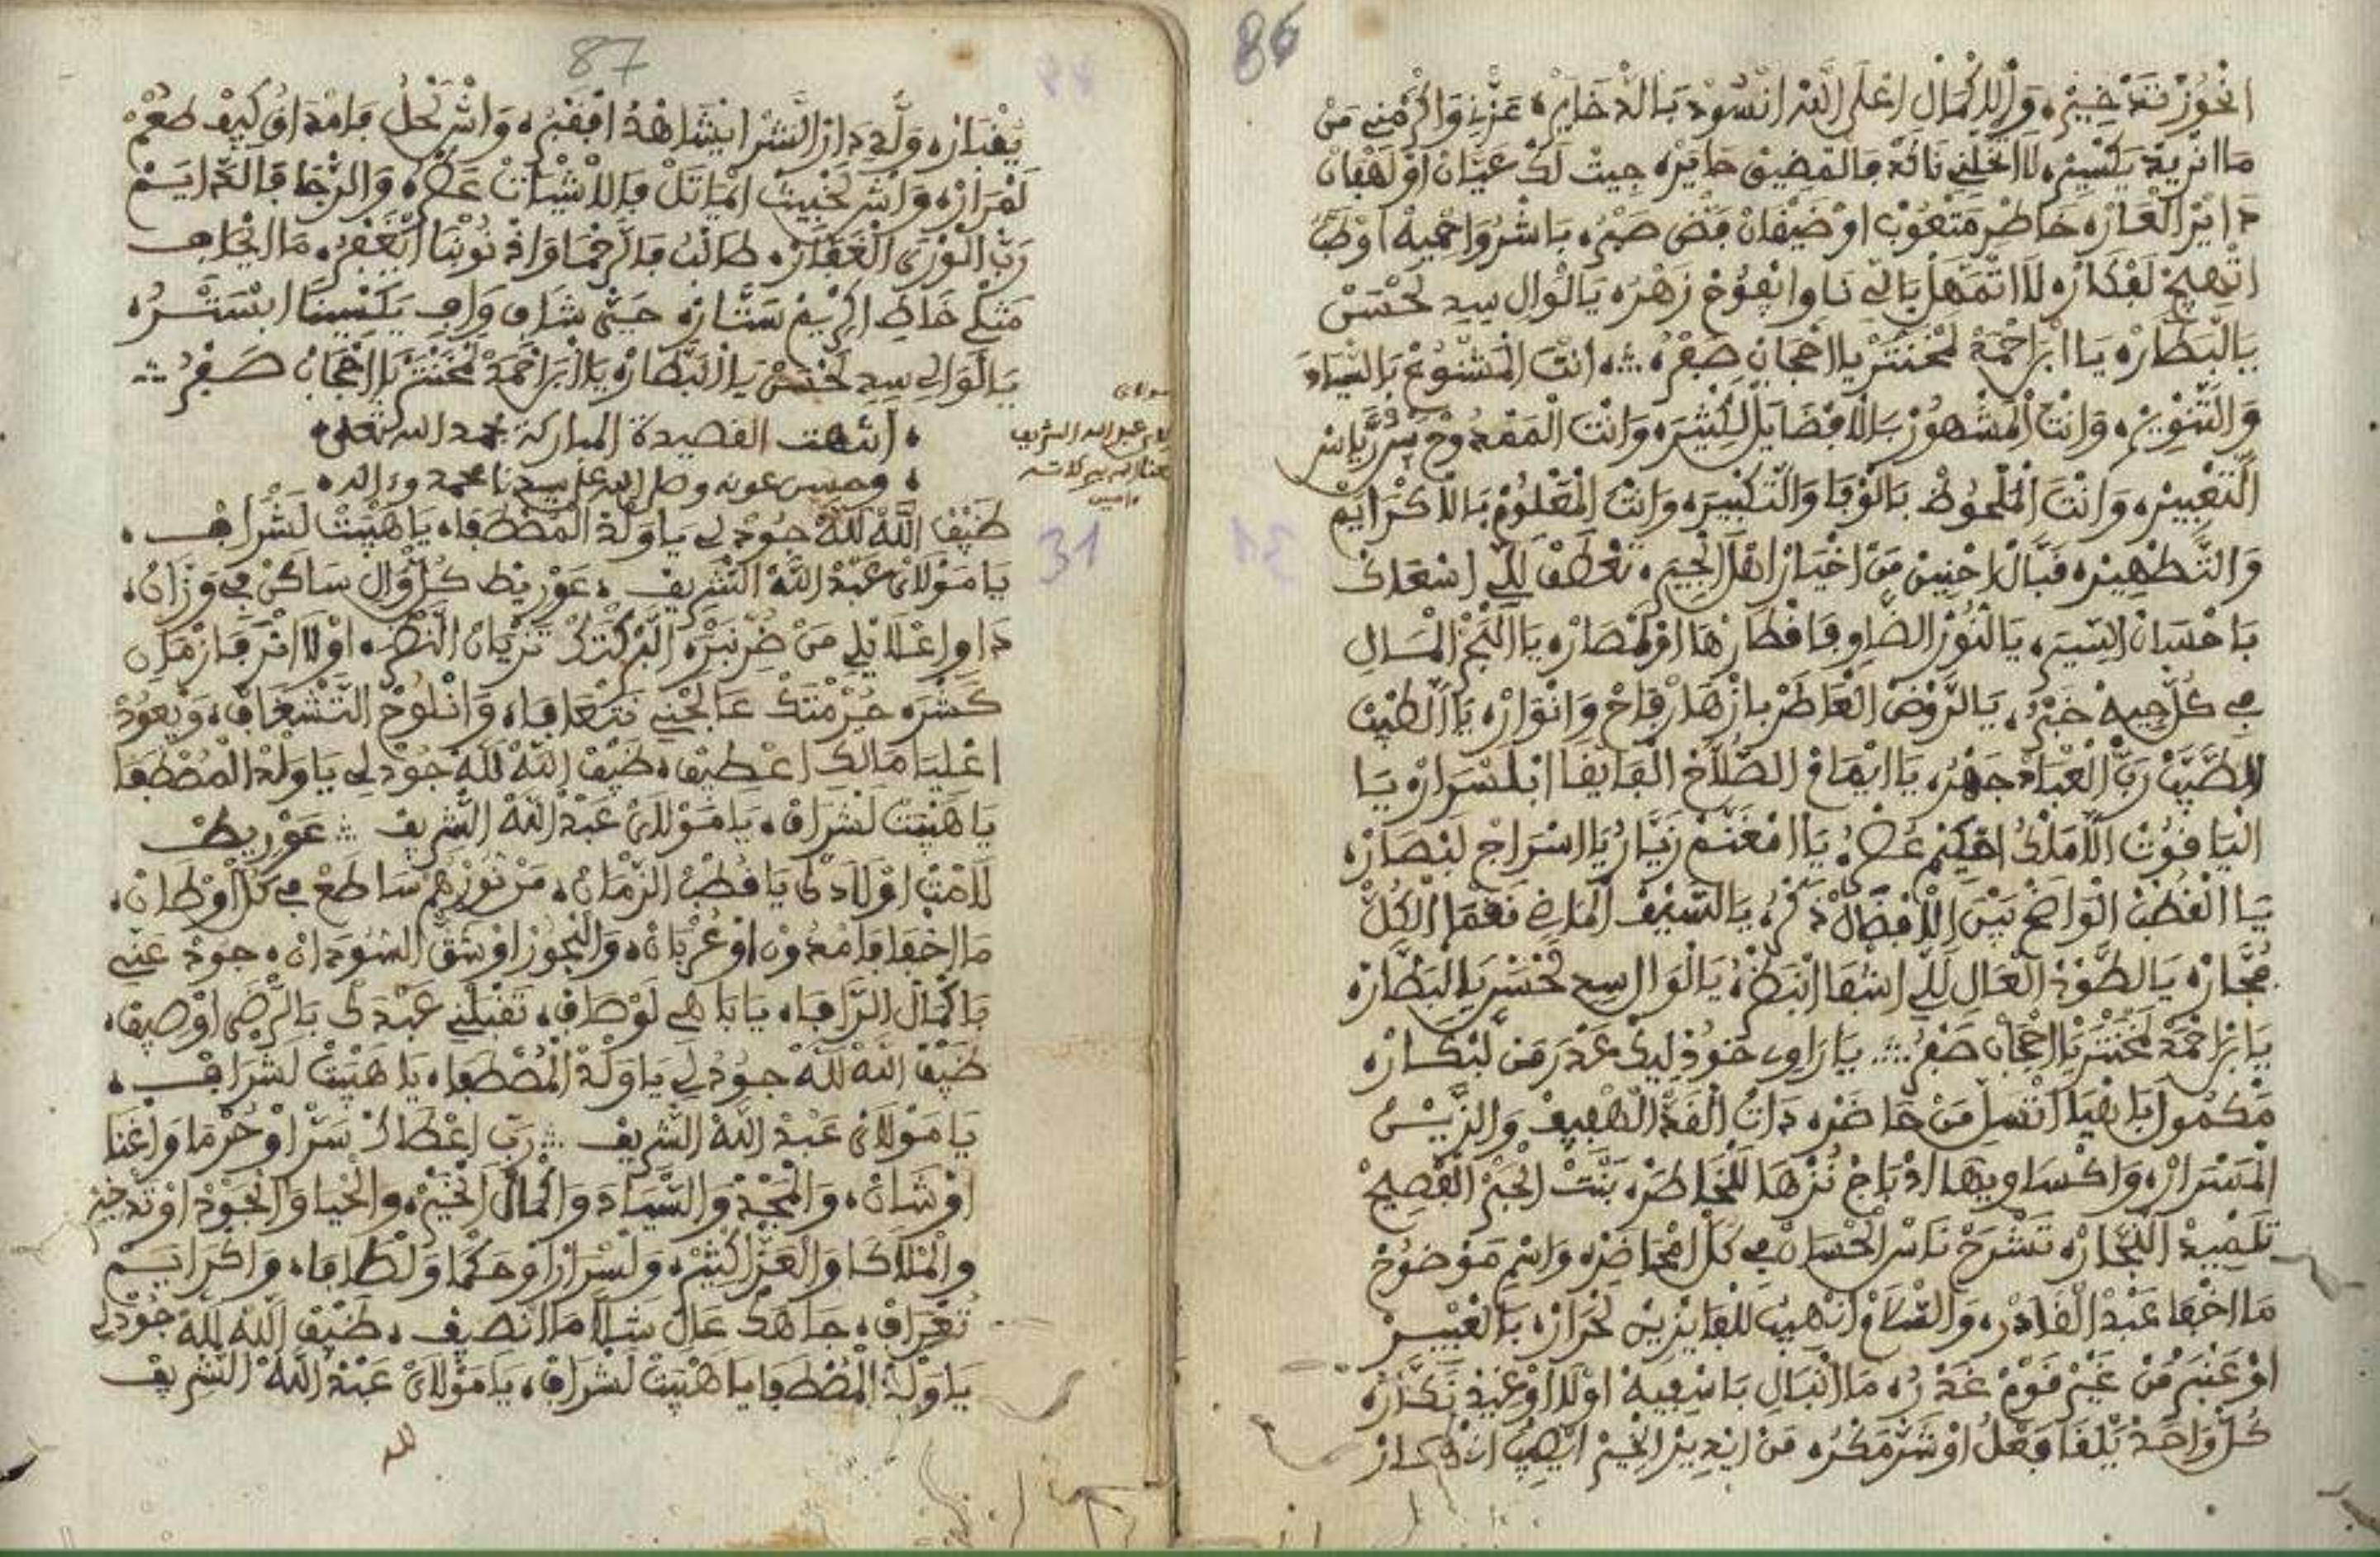 86
انحوز تدخير، والاكمال اعلى الله انسود بالدخاير، عزني واكرمني من
ما انريد يكسير، لا اتخلني نالد فالمضيق حاير، جيت لك عيان او لهفان
داير العار، خاطر متعوب او ضيفان فض صبر، باشروا حميه اوطب
اتهيج لفكار، لا اتمهل يا لي ناوا يفوح زهر، يا الوالي سيد لحسن
يا البطار، يا ابراحمة لمحنتر يا احجاب صفر، انت المشموع بالسياد
والتنوير، وانت المشهور بالافضايل لكثير، وانت الممدوح سر ياسر
التعبير، وانت الملحوظ بالوفا والتكبير، وانت المعلوم بالاكرايم
والتطهير، قبال احنين من اخيار اهل الجيم، تعطف للي اسعاك
باحسان السير، يا النور الضاوي فاقطارها او لمصار، يا النجم السالي
في كل جيه خبر، يا الروض العاطر بازهار فاح وانوار، يا الطيب
الطيب رب العباد جهر، يا ايمام الصلاح الفايقا ابلسرار، يا
اليافوت الاملك احكيم عصر، يا امغنم زيار يا اسراج لبصار،
يا القطب الواضح بين الافضال ذكر، يا السيف الماضي نقما الكل
فجار، يا الطود العالي للي اشقا انبطر، يا الوالي سيد لحسن يا البطار،
يا ابراحمة لمحنتر يا احجاب صفر، يا راوي خود ليك عدر من لبكار،
مكمول باهيا اتسل من حاضر، دات القد الطفيف والزين
المسرار، واكساويها ادباج نزها للخاطر، بنت الحبر الفصيح
تلميد النجار، تشرح ناس الحسان في كل امحاضر، واسم موضوح
ما اخفا عبد القادر، والسلام انهيب للفايزين لحرار، بالعبير
او عنبر من غير قوم غدر، ما انبال باسفيه اولا اوغيد نكار،
كل واحد يلقا فعل او شر مكر، من ايدير الخير ايصيب
87
يغدار، ولي دار الشر ايشاهد افقبر، واش نحل فامداق كيف طعم
لمرار، واش تجيب اليا تل فالاشيات عصر، والرجا فالدايم
رب الورى الغفار، طالب فالرحما واذنوبنا ايغفر، ما ايخاب
متكي خاط اكريم ستار، حتى شاف وافي يكسينا ابستر،
يا الوالي سيد لحسن يا البطار، يا ابراحمة لمحنتر يا احجاب صفر
انتهت القصيدة المباركة بحمد الله تعلى
وحسن عونه وصل الله على سيدنا محمد وءاله
مولاي
عبد الله الشريف
نفعنا الله ببركاته
ءامين
31
ضيف الله لله جود لي يا ولد المصطفا، يا هيبت لشراف،
يا مولاي عبد الله الشريف، عوريط كل وال ساكن في وزان،
داوا اعلايلي من ضر نبر، البركتك ترياق النظر، اولا انرى فازمان
كشر، حرمتك عالجني نتعافا، وانلوح التشعاف، ويعود
اعليا مالك اعطيف، ضيف الله لله جود لي يا ولد المصطفا
يا هيبت لشراف، يا مولاي عبد الله الشريف عوريط
لامت اولادك يا قطب الزمان، من نورهم ساطع في كل اوطان،
ما اخفا فامدون او عربان، والبحور او شق السودان، جود عني
باكمال الرافا، يا باهي لوصاف، تقبلني عبدك بالرضى اوصيف،
ضيف الله لله جود لي يا ولد المصطفا، يا هيبت لشراف،
يا مولاي عبد الله الشريف رب اعطاك سر او حرما واغنا
او شان، والمجد والسياد والمال الخير، والحيا والجود او تدخير
والملاكا والعز الكثير، ولسرار او حكما ولطافا، واكرايم
تغراف، جاهك عال شلا ما انصيف، ضيف الله لله جود لي
يا ولد المصطفا يا هيبت لشراف، يا مولاي عبد الله الشريف
لله